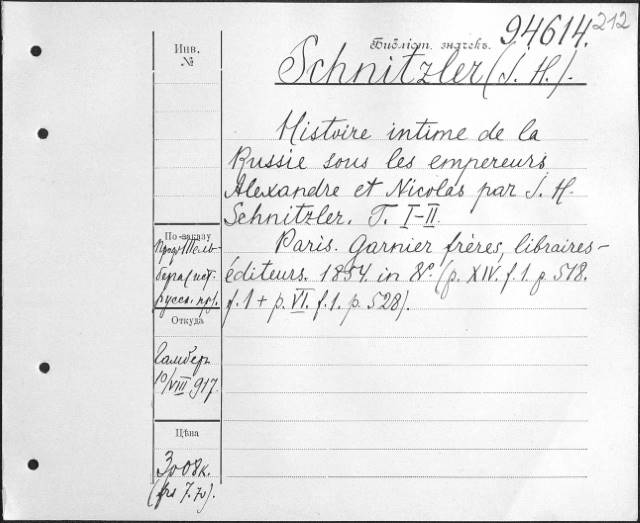 94614.
212
Инв.
№
Библіот. значекъ.
Schnitzler (J. H.).
Histoire intime de la
Russie sous les empereurs
Alexandre et Nicolas par J. H.
Schnitzler. T. I-II.
Paris. Garnier frères, libraires-
éditeurs. 1854. in 8º. (p. XIV. f. 1. p. 518.
f. 1 + p. VI. f. 1. p. 528).
По заказу
Проф. Тель-
берга (ист.
русск. пр).
Откуда
10/VIII 917
Цѣна
3р 08к.
(frs 7.70).